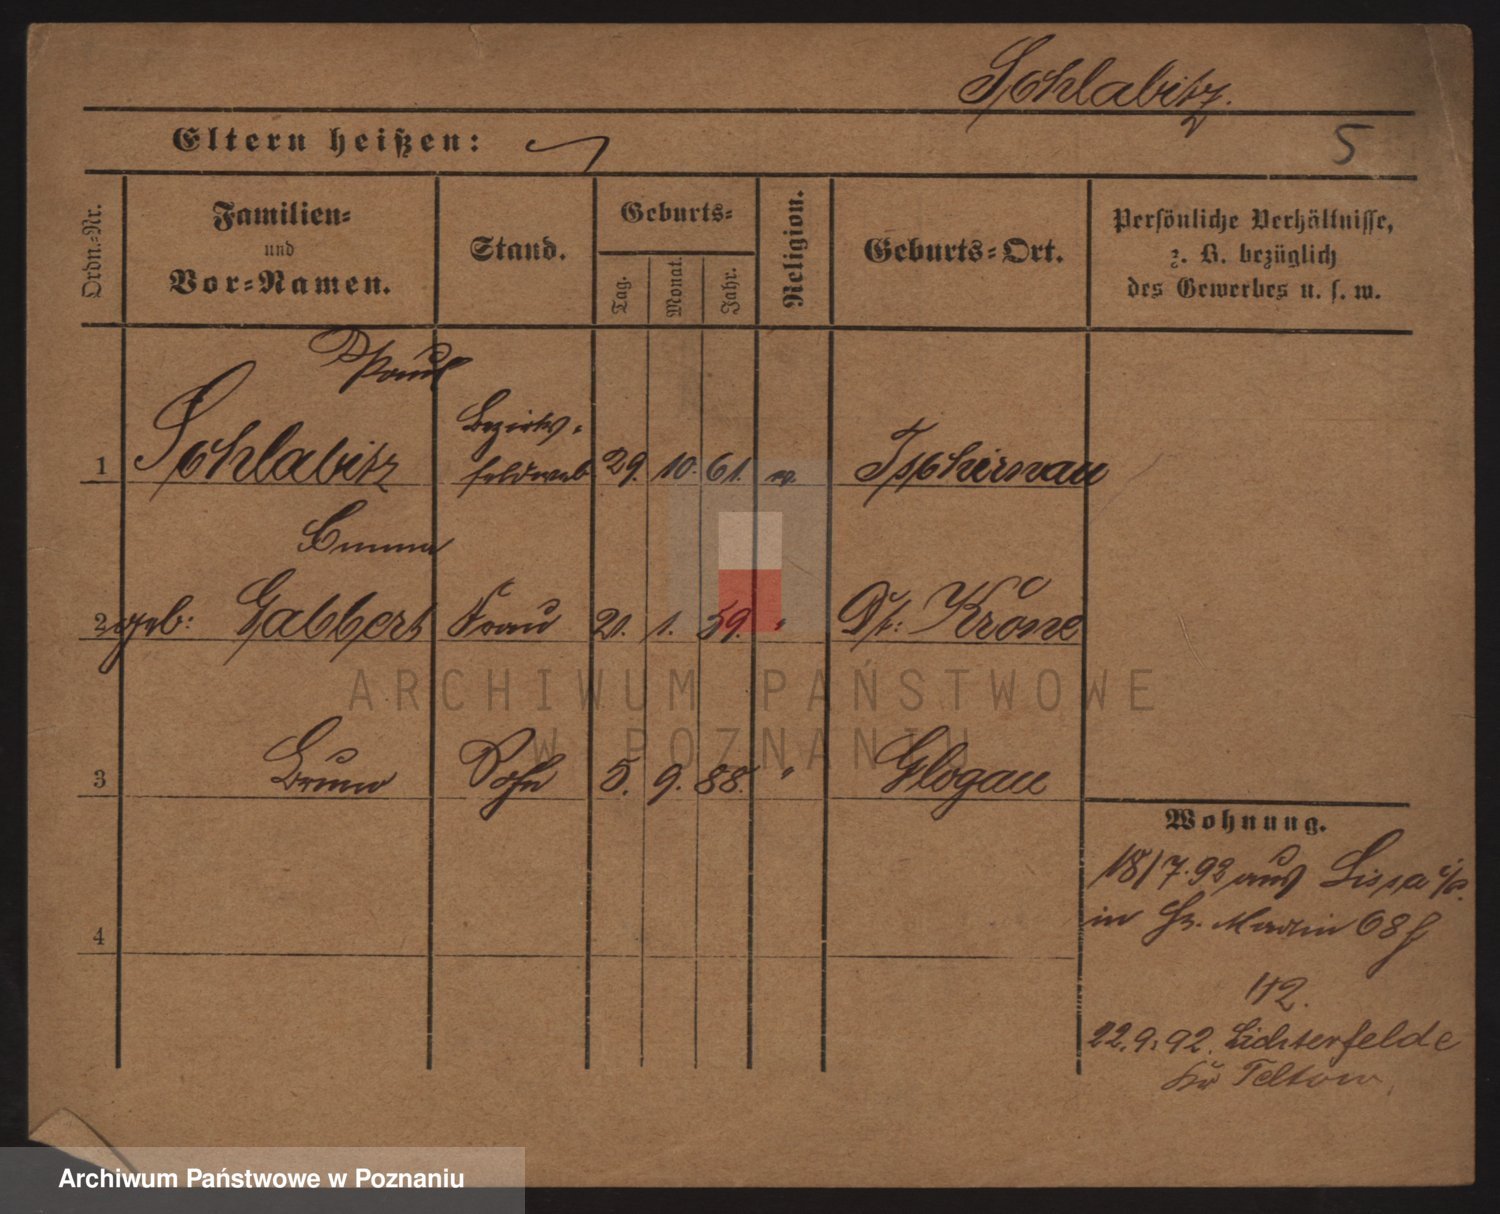 Schlabitz.
Eltern heißen:
5
Ordn.-Nr.
Familien-
und
Vor-Namen.
Stand.
Geburts-
Tag.
Monat.
Jahr.
Religion.
Geburts-Ort.
Persönliche Verhältnisse,
z. B. bezüglich
des Gewerbes u. s. w.
Paul
1 Schlabitz Bezirks- feldweb 29. 10. 61. ev. Tschirnau
Emma
2 geb: Gabbert Frau 21. 1. 59. " Dt: Krone
3 Bruno Sohn 5. 9. 88. " Glogau
4
Wohnung.
18/7.92 aus Lissa i/P.
in St. Martin 68
112.
22.9.92. Lichterfelde
Kr Teltow.
ARCHIWUM PAŃSTWOWE
W POZNANIU
Archiwum Państwowe w Poznaniu